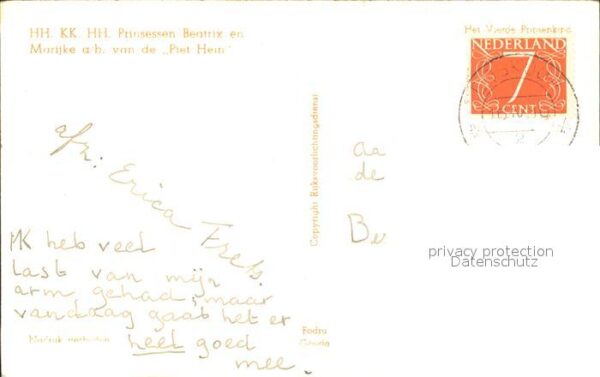 HH. KK. HH. Prinsessen Beatrix en
Marijke a/b. van de „Piet Hein"
Het Vierde Prinsenkind
NEDERLAND
7
CENT
afz. Erica
Copyright Rijksvoorlichtingsdienst
Aa
de
Be
Ik heb veel
last van mijn
arm gehad, maar
vandaag gaat het er
heel goed
mee.
privacy protection
Datenschutz
Nadruk verboden
Fodru
Gouda